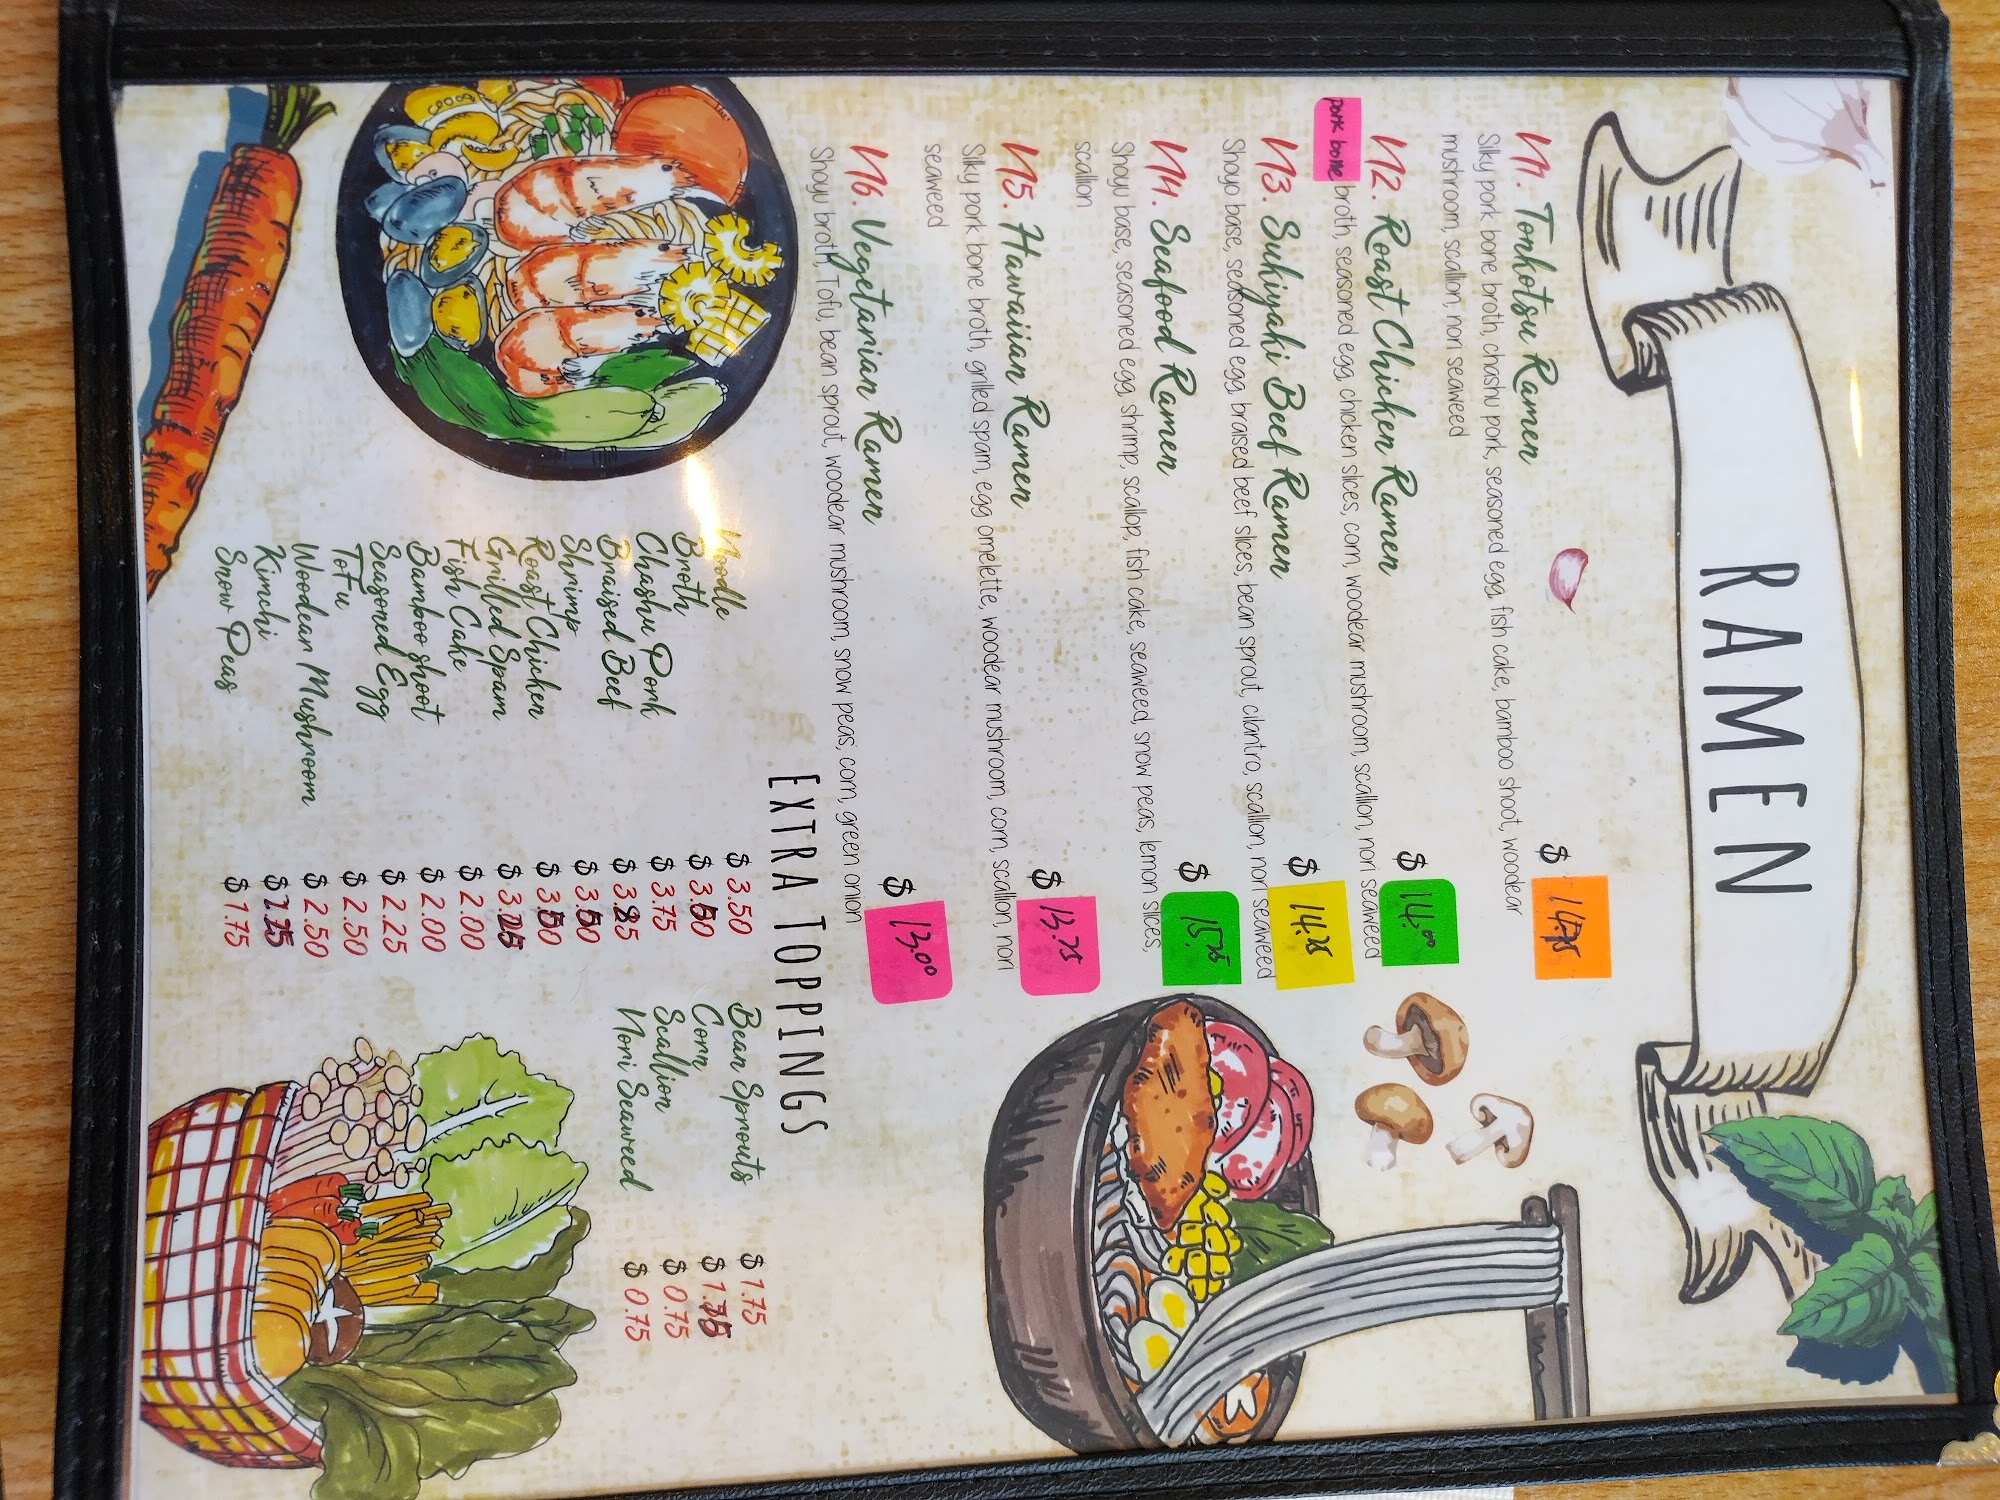 RAMEN
N1. Tonkotsu Ramen $
Silky pork bone broth, chashu pork, seasoned egg, fish cake, bamboo shoot, woodear
mushroom, scallion, nori seaweed
N2. Roast Chicken Ramen $ 14.00
pork bone broth, seasoned egg, chicken slices, corn, woodear mushroom, scallion, nori seaweed
N3. Sukiyaki Beef Ramen $ 14.75
Shoyo base, seasoned egg, braised beef slices, bean sprout, cilantro, scallion, nori seaweed
N4. Seafood Ramen $ 15.25
Shoyu base, seasoned egg, shrimp, scallop, fish cake, seaweed, snow peas, lemon slices,
scallion
N5. Hawaiian Ramen $ 13.75
Silky pork bone broth, grilled spam, egg omelette, woodear mushroom, corn, scallion, nori
seaweed
N6. Vegetarian Ramen $ 13.00
Shoyu broth, Tofu, bean sprout, woodear mushroom, snow peas, corn, green onion
EXTRA TOPPINGS
Noodle $ 3.50
Broth $
Chashu Pork $ 3.75
Braised Beef $
Shrimp $
Roast Chicken $
Grilled Spam $
Fish Cake $ 2.00
Bamboo shoot $ 2.00
Seasoned Egg $ 2.25
ToFu $ 2.50
Woodear Mushroom $ 2.50
Kimchi $
Snow Peas $ 1.75
Bean Sprouts $ 1.75
Corn $
Scallion $ 0.75
Nori Seaweed $ 0.75